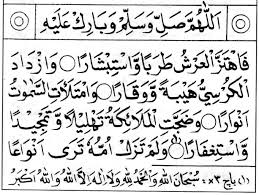 اَللّٰهُمَّ صَلِّ وَسَلِّمْ وَبَارِكْ عَلَيْهِ
فَاهْتَزَّ الْعَرْشُ طَرَبًا وَّاسْتِبْشَارًا ○ وَازْدَادَ
الْكُرْسِيُّ هَيْبَةً وَّوَقَارًا ○ وَامْتَلَأَتِ السَّمٰوَاتُ
اَنْوَارًا ○ وَضَجَّتِ الْمَلَائِكَةُ تَهْلِيْلًا وَّتَمْجِيْدًا
وَّاسْتِغْفَارًا (١) وَلَمْ تَزَلْ اُمُّهُ تَرٰى اَنْوَاعًا
(١) باچ ٣× : سُبْحَانَ اللهِ وَالْحَمْدُ لِلّٰهِ وَلَا اِلٰهَ اِلَّا اللهُ وَاللهُ اَكْبَرُ